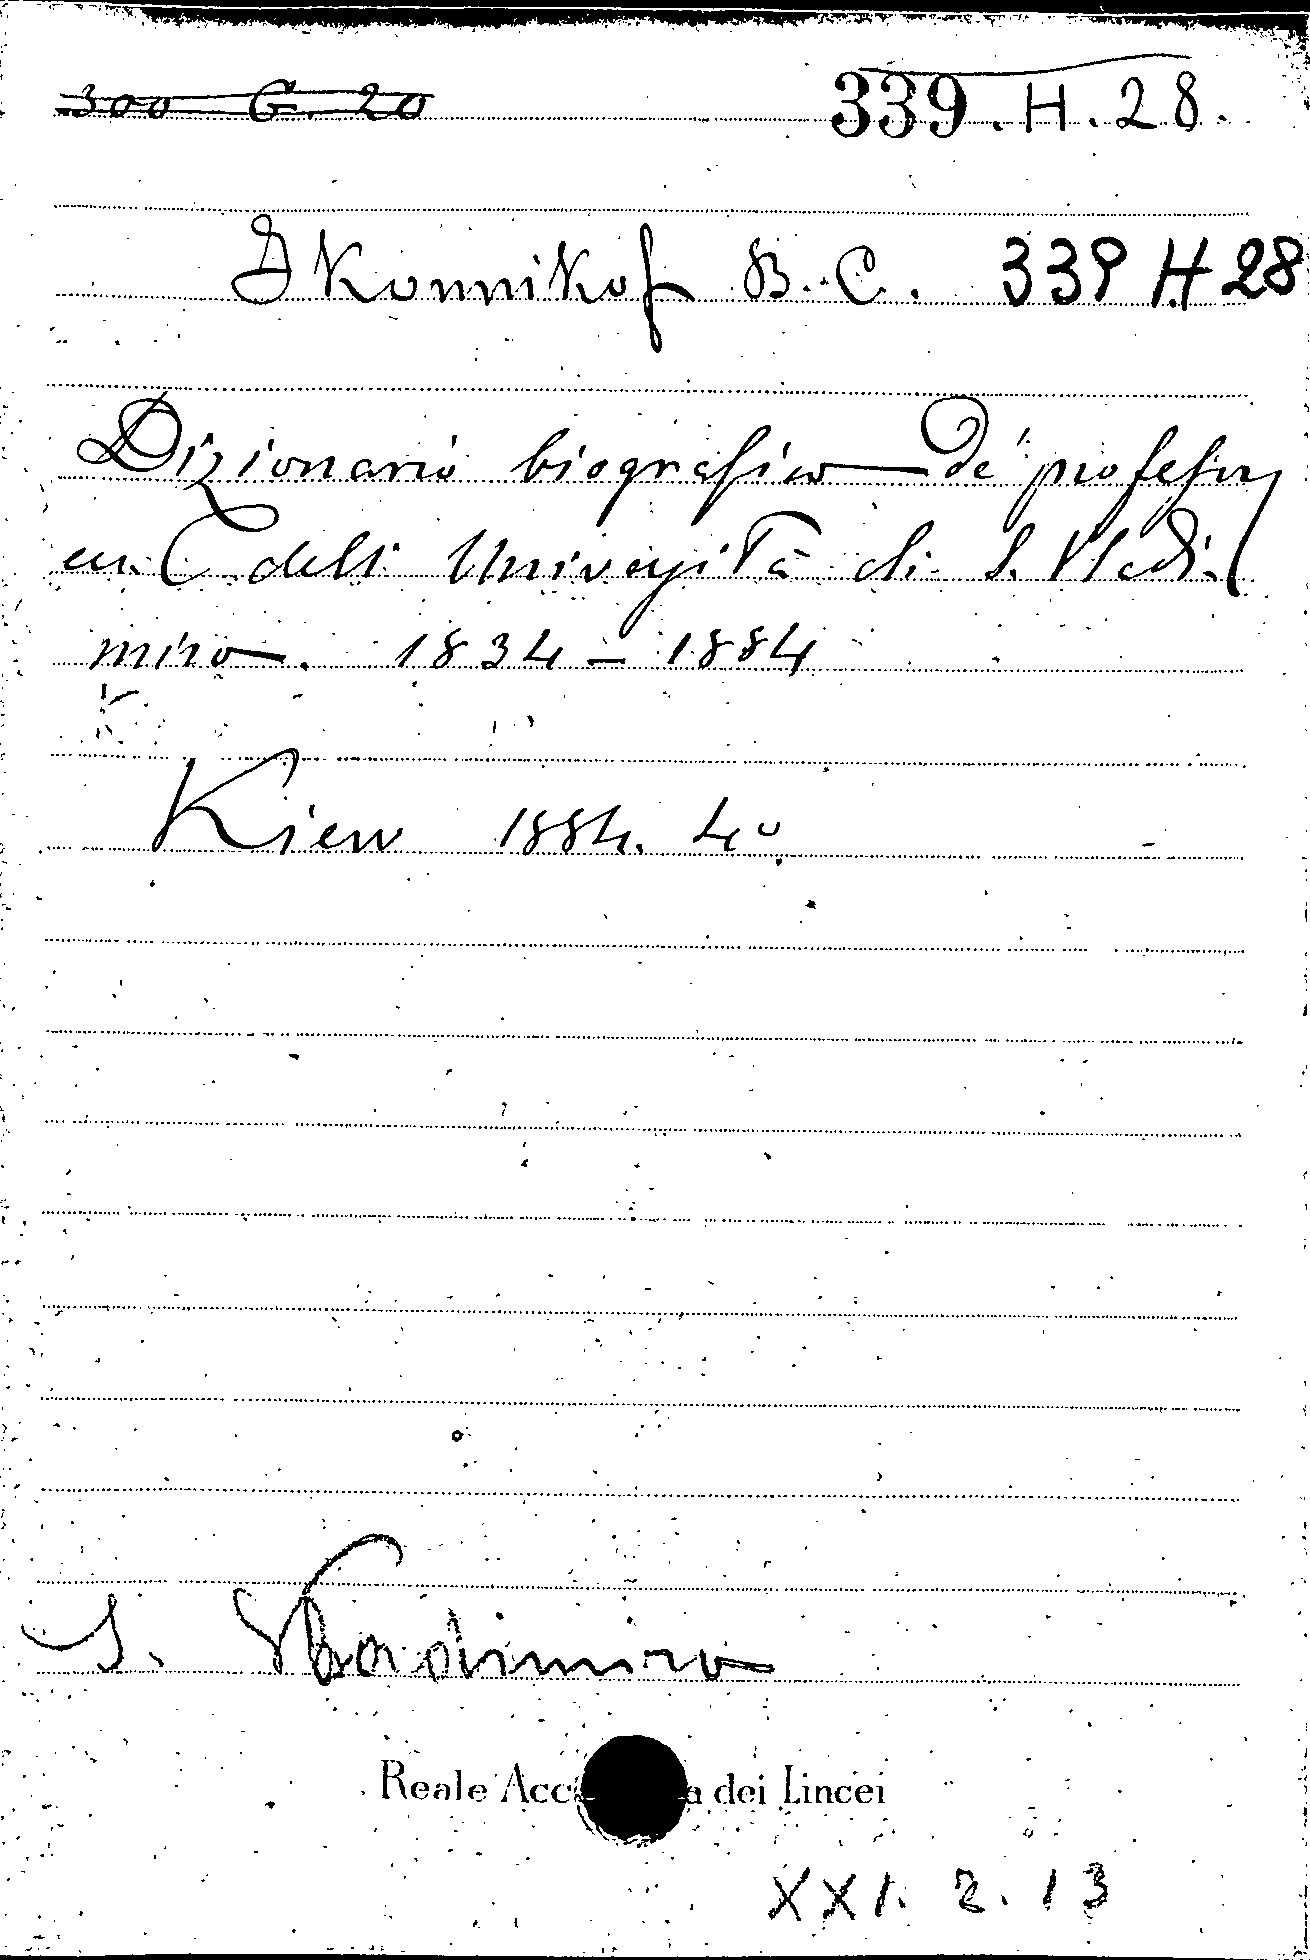 300 G. 20 339.H.28.
Ikonnikof B. C. 339 H 28
Dizionario biografico de' professori
dell' Università di S. Vladi-
miro. 1834 - 1884
Kiew 1884. 4º
S. Vladimiro
Reale Acc a dei Lincei
XXI. 2. 13